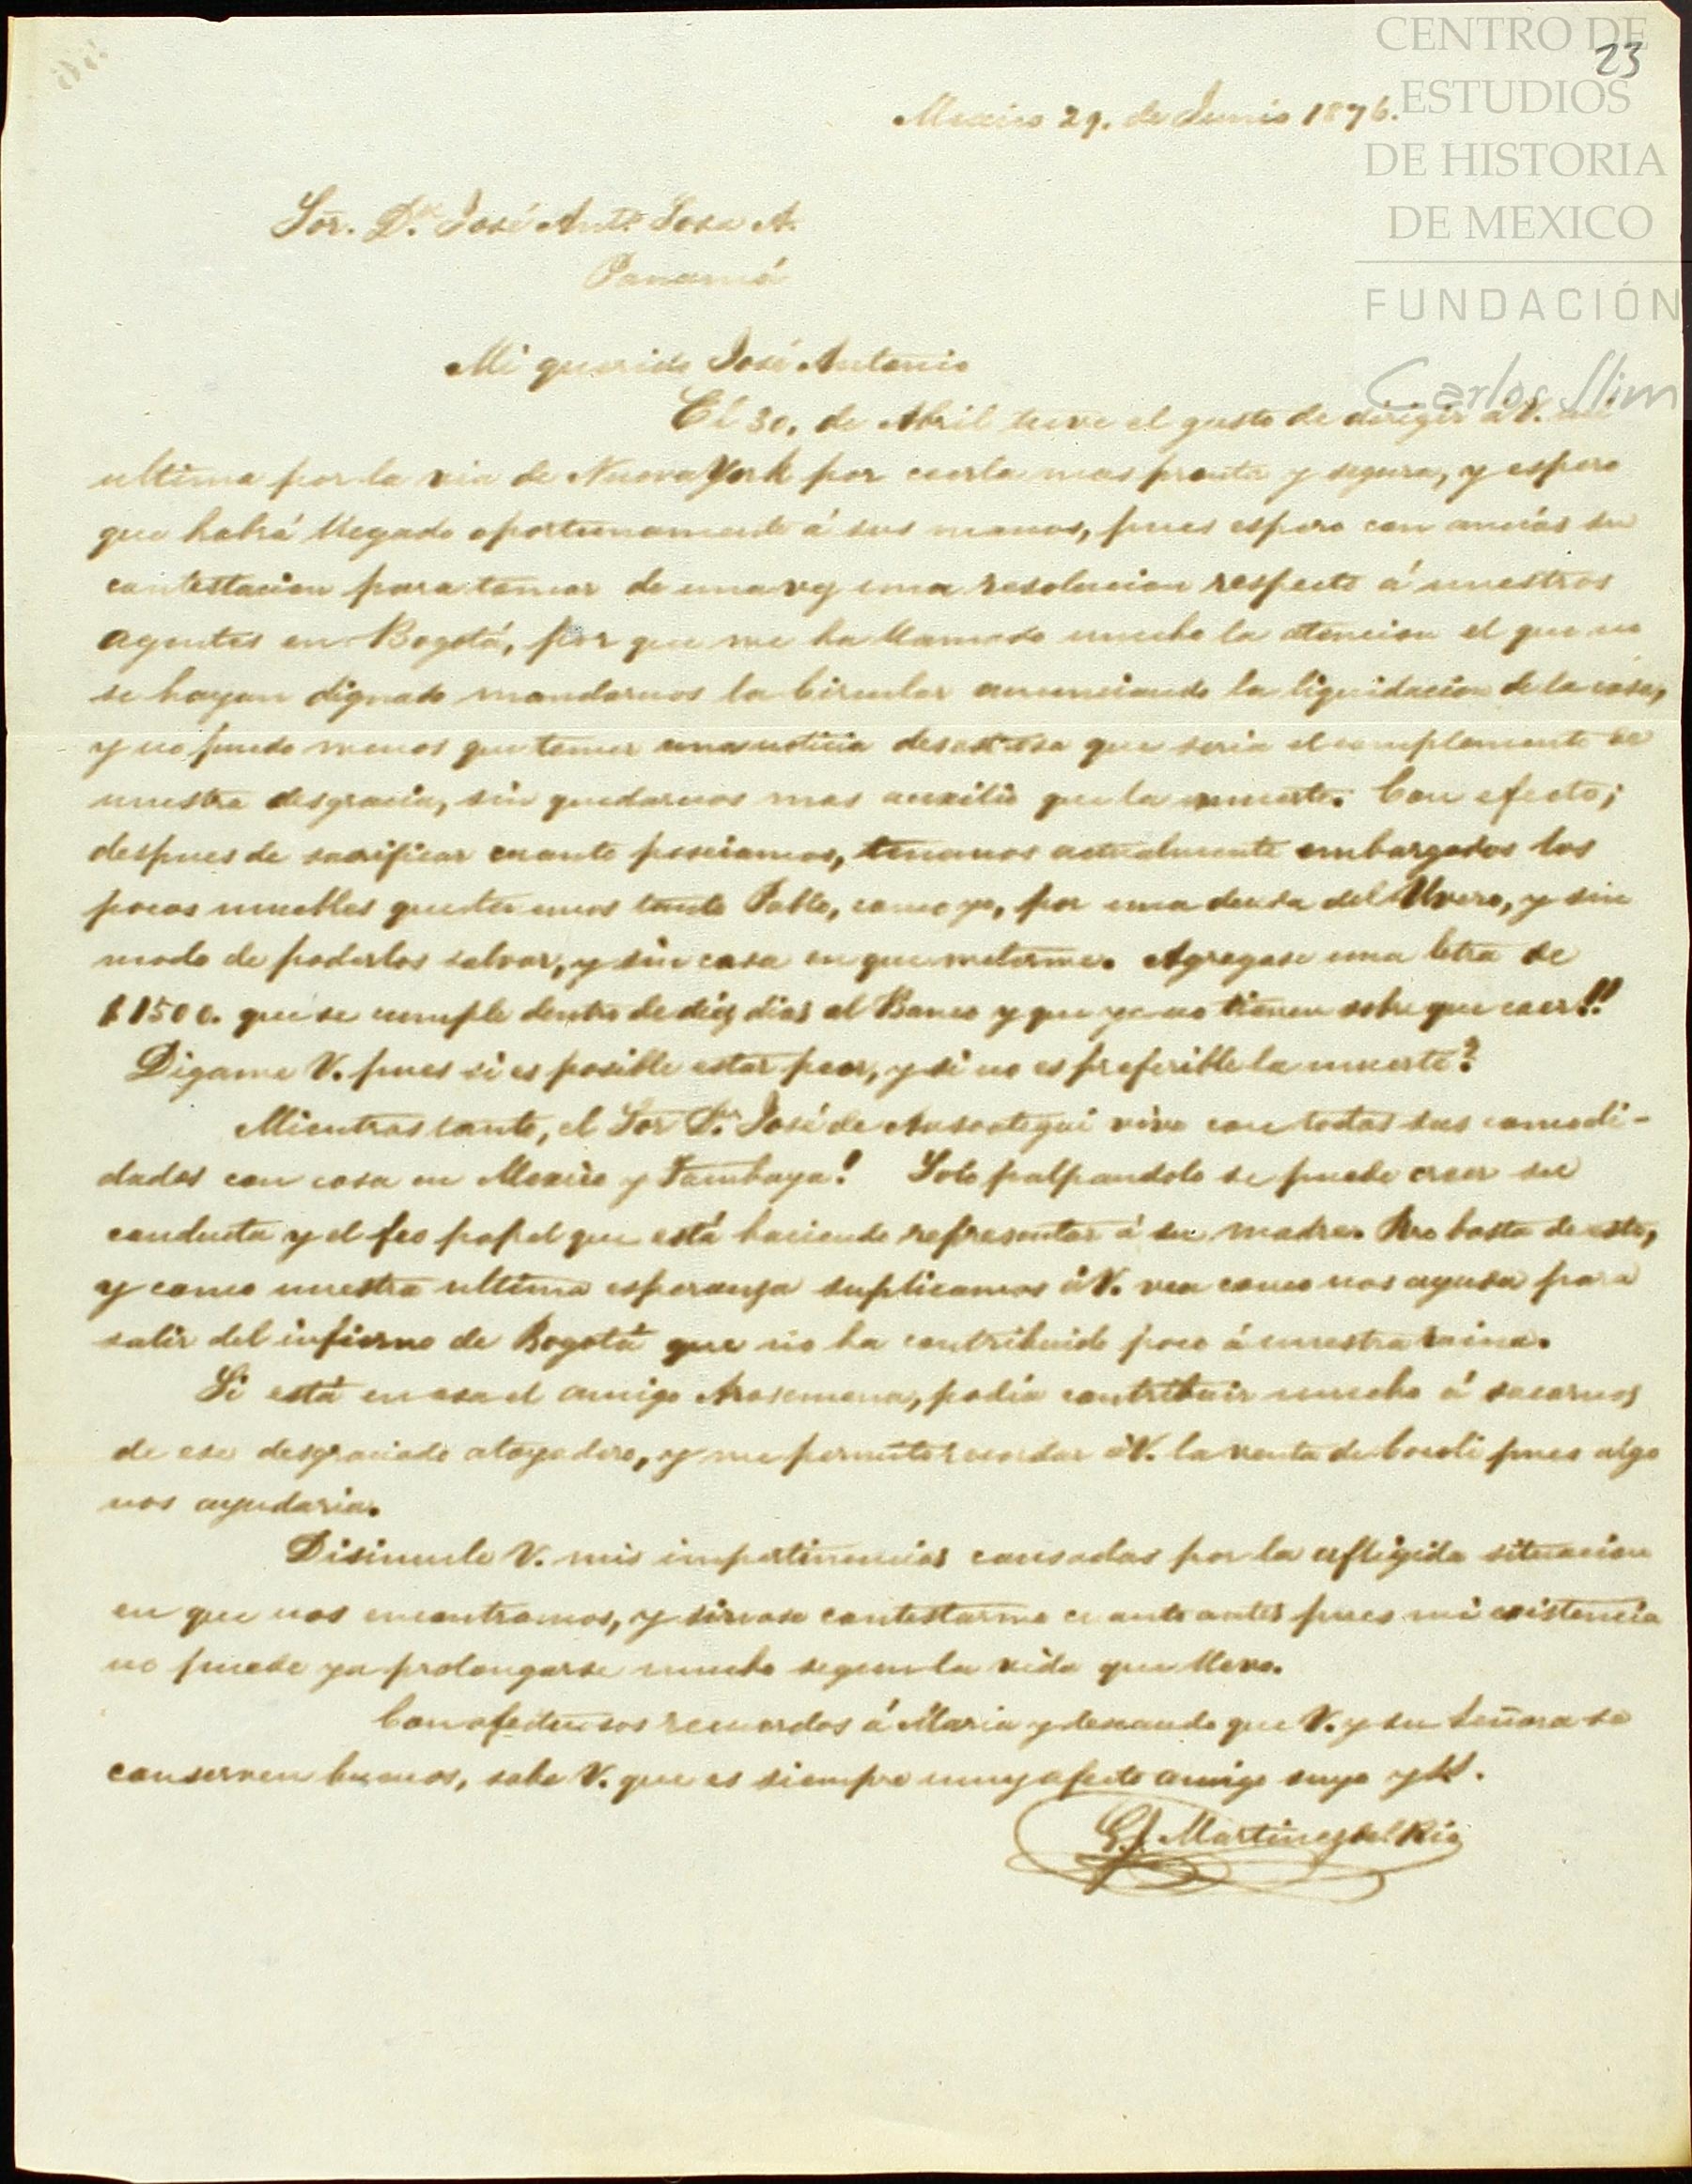 CENTRO DE
ESTUDIOS
DE HISTORIA
DE MEXICO
FUNDACIÓN
Carlos Slim
23
Mexico 29. de Junio 1876.
Sor. Dn. José Anto. Sosa A.
Panamá
Mi querido José Antonio
El 30. de Abril tuve el gusto de dirigir á V. mi
ultima por la via de Nueva York por creerla mas pronta y segura, y espero
que habrá llegado oportunamente á sus manos, pues espero con ancias su
contestacion para tomar de una vez una resolucion respecto á nuestros
agentes en Bogotá, por que me ha llamado mucho la atencion el que no
se hayan dignado mandarnos la Circular anunciando la liquidacion de la casa,
y no puedo menos que temer una noticia desastrosa que seria el complemento de
nuestra desgracia, sin quedarnos mas auxilio que la muerte. Con efecto;
despues de sacrificar cuanto poseiamos, tenemos actualmente embargados los
pocos muebles que tenemos tanto Pablo, como yo, por una deuda del Uvero, y sin
modo de poderlos salvar, y sin casa en que meterme. Agregase una letra de
$1500. que se cumple dentro de diez dias al Banco y que ya no tienen sobre que caer!!
Digame V. pues si es posible estar peor, y si no es preferible la muerte?
Mientras tanto, el Sor Dn. José de Ansoategui vive con todas sus comodi-
dades con casa en Mexico y Tacubaya! Solo palpandolo se puede creer su
conducta y el feo papel que está haciendo representar á su madre. Pero basta de esto,
y como nuestra ultima esperanza suplicamos á V. vea como nos ayuda para
salir del infierno de Bogotá que no ha contribuido poco á nuestra ruina.
Si está en esa el amigo Arosemena, podia contribuir mucho á sacarnos
de ese desgraciado atoyadero, y me permito recordar á V. la venta de Cocoli pues algo
nos ayudaria.
Disimule V. mis impertinencias causadas por la afligida situacion
en que nos encontramos, y sirvase contestarme cuanto antes pues mi existencia
no puede ya prolongarse mucho segun la vida que llevo.
Con afectuosos recuerdos á Maria y deseando que V. y su Señora se
conserven buenos, sabe V. que es siempre muy afecto amigo suyo y
G. Martinez del Rio